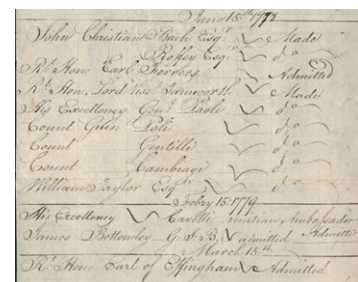 June 15th 1778
John Christian Bach Esqr. Made
Roffey Esqr. do
Rt. Hon. Earl Ferrers Admitted
Rt. Hon. Lord Vise Tamworth Made
His Excellency Genl. Paoli do
Count Giles Poli do
Count Gentilli do
Count Cambiagi do
William Taylor Esqr. do
Febry 15: 1779
His Excellency Cavelli venitian Ambassador
James Bottomley G.S.B. admitted Admitted
March 15th
Rt. Hon. Earl of Effingham Admitted